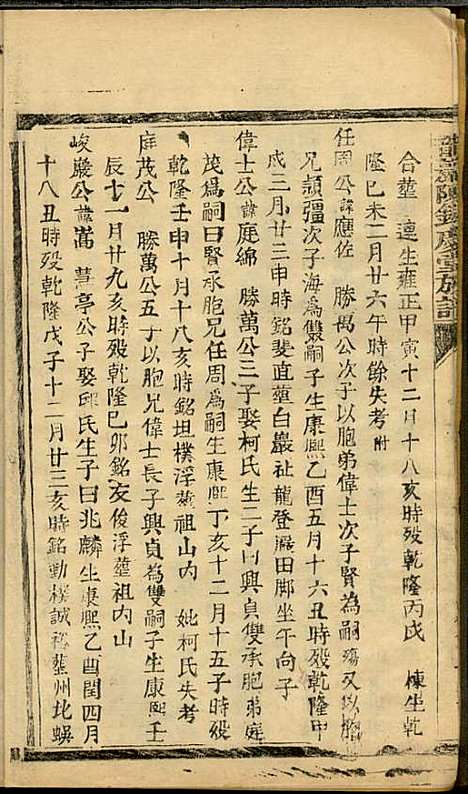 合塟 達生雍正甲寅十二月十八亥時殁乾隆丙戌 棟生乾
隆己未二月廿六午時餘失考附
任周公諱應佐 勝萬公次子以胞弟偉士次子賢為嗣殤又以胞
兄顯疆次子海為雙嗣子生康熙乙酉五月十六丑時殁乾隆甲
戌三月廿三申時銘斐直塟白巖祉龍登漏田脚坐午向子
偉士公諱庭綿 勝萬公三子娶柯氏生二子曰興貞雙承胞弟庭
茂為嗣曰賢承胞兄任周為嗣生康熙丁亥十二月十五子時殁
乾隆壬申十月十八亥時銘坦樸浮塟祖山内 妣柯氏失考
庭茂公 勝萬公五子以胞兄偉士長子興貞為雙嗣子生康熙壬
辰十一月廿九亥時殁乾隆己卯銘友俊浮塟祖内山
峻巖公諱嵩 彗亭公子娶邱氏生子曰兆麟生康熙乙酉閏四月
十八丑時殁乾隆戊子十二月廿三亥時銘勤樸誠裕塟州北蜈